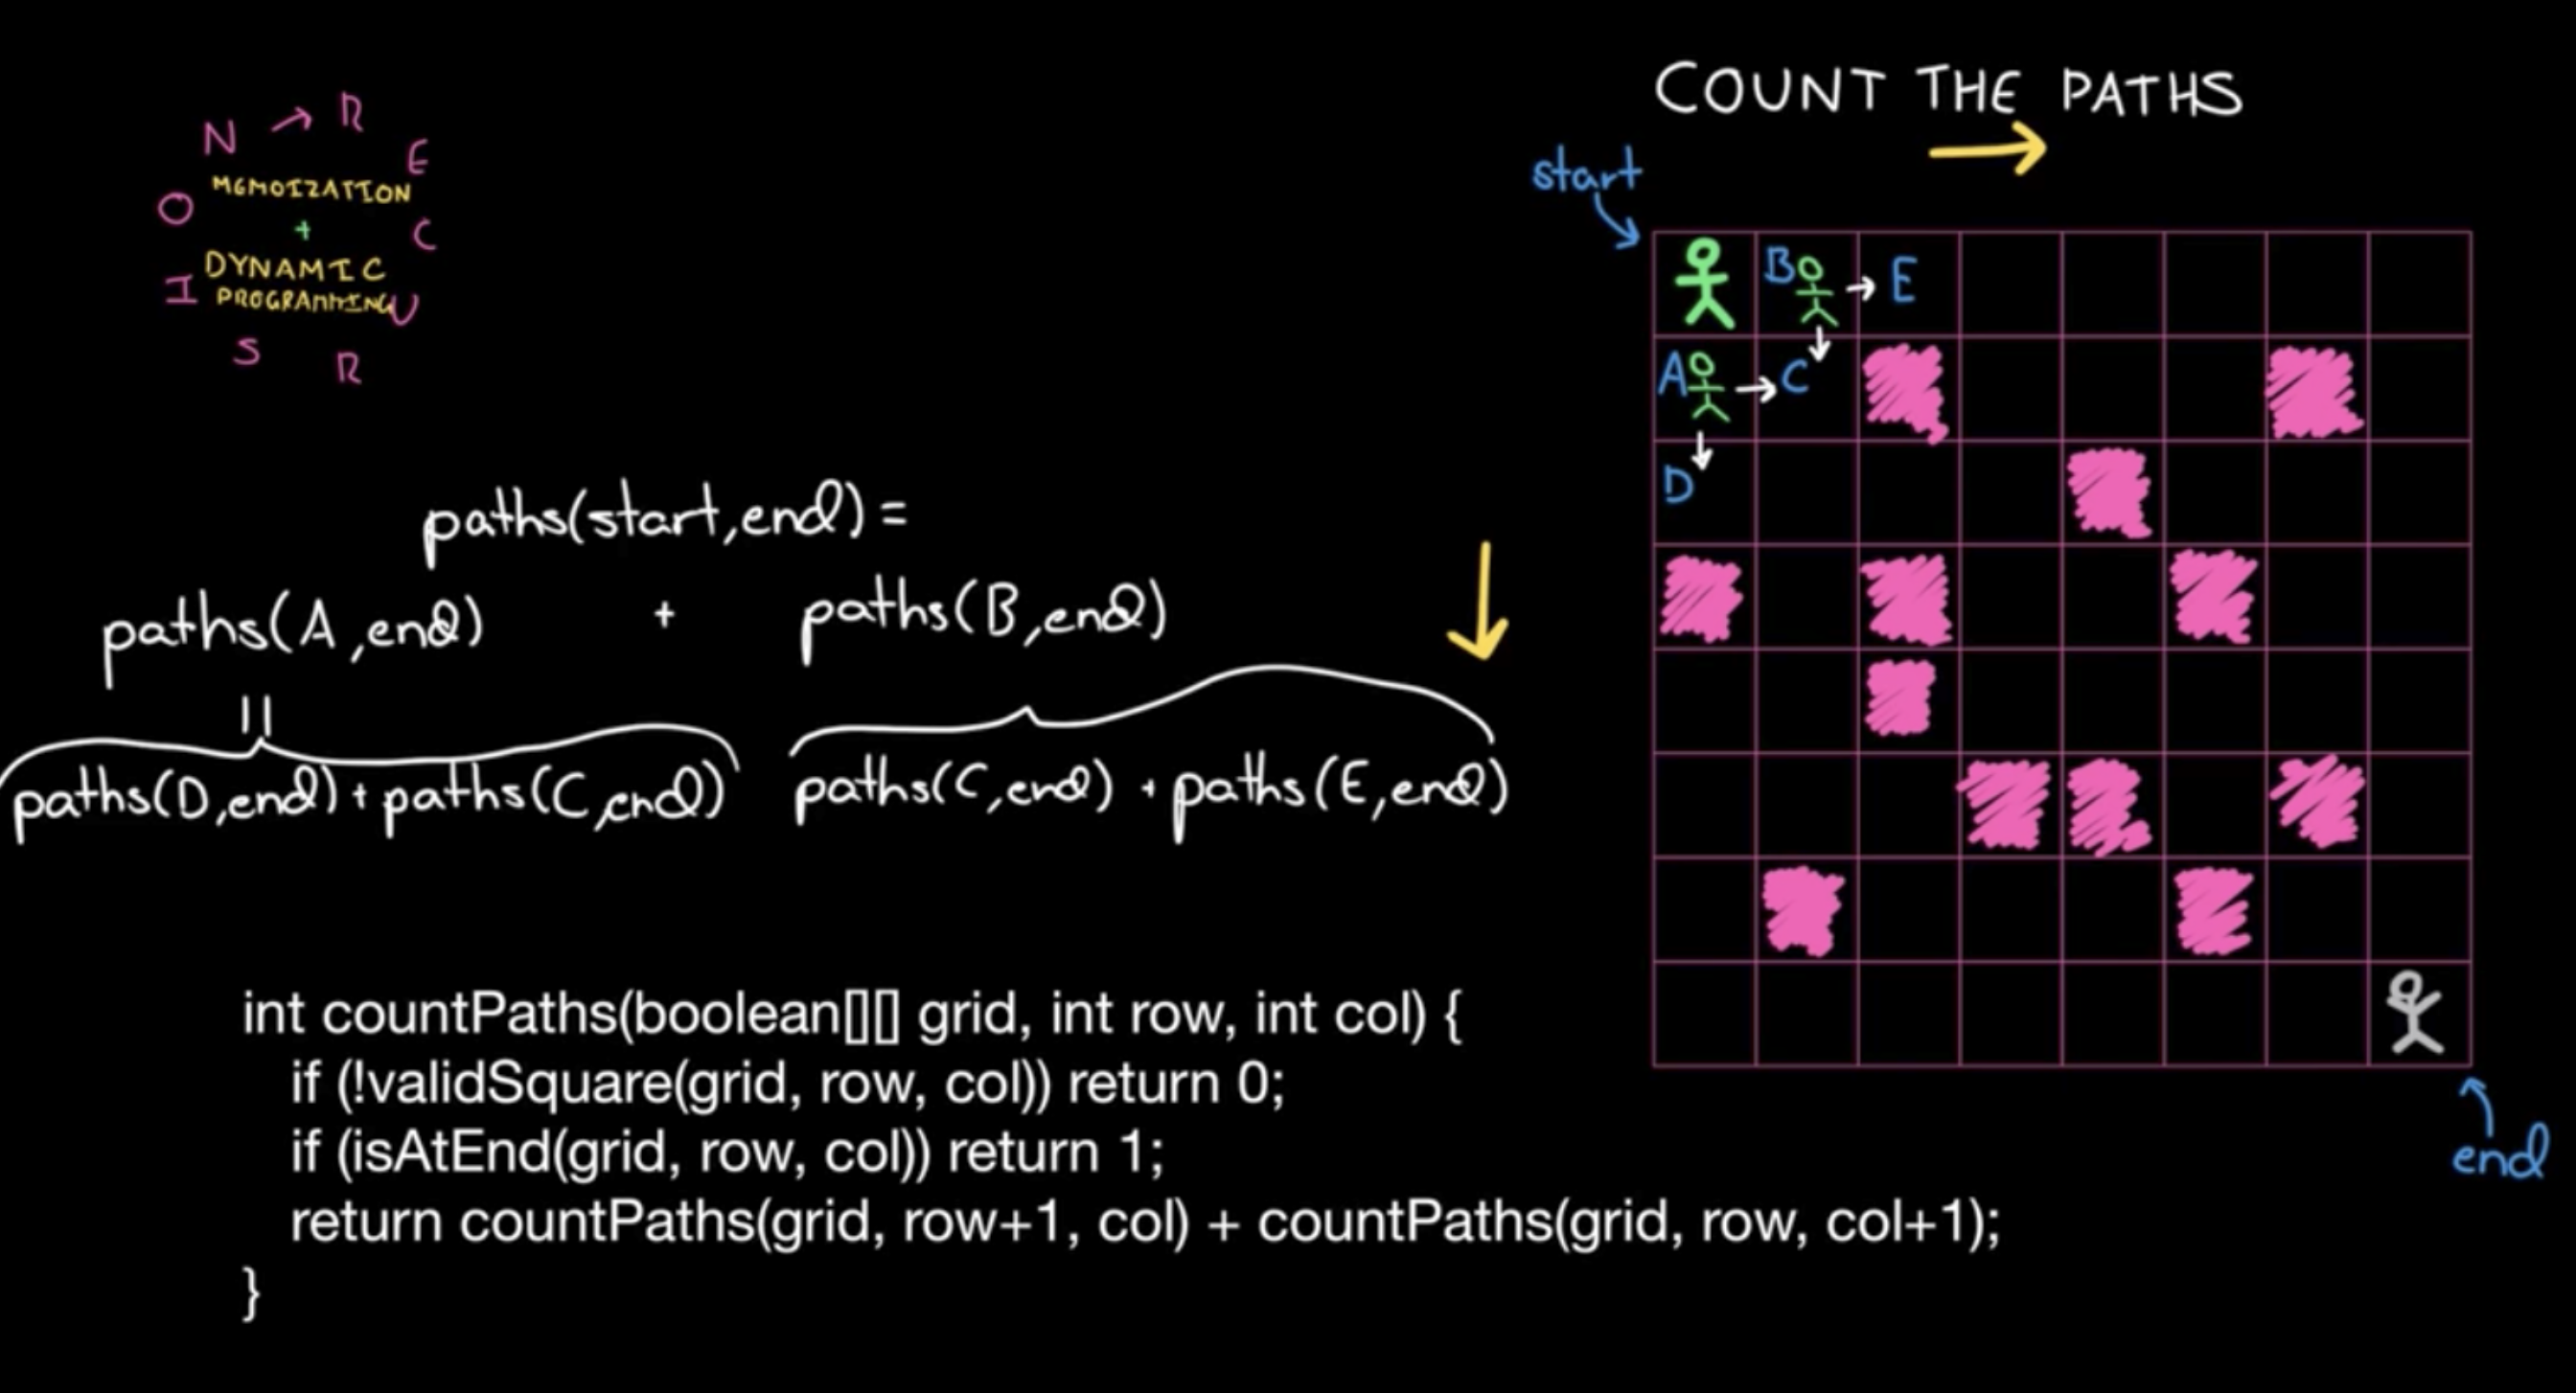 COUNT THE PATHS
start
N → R
E
MEMOIZATION
O
+
C
DYNAMIC
I
PROGRAMMING
U
S
R
B → E
A → C
D
paths(start,end) =
paths(A,end) + paths(B,end)
||
paths(D,end) + paths(C,end)
paths(C,end) + paths(E,end)
int countPaths(boolean[][] grid, int row, int col) {
if (!validSquare(grid, row, col)) return 0;
if (isAtEnd(grid, row, col)) return 1;
return countPaths(grid, row+1, col) + countPaths(grid, row, col+1);
}
end